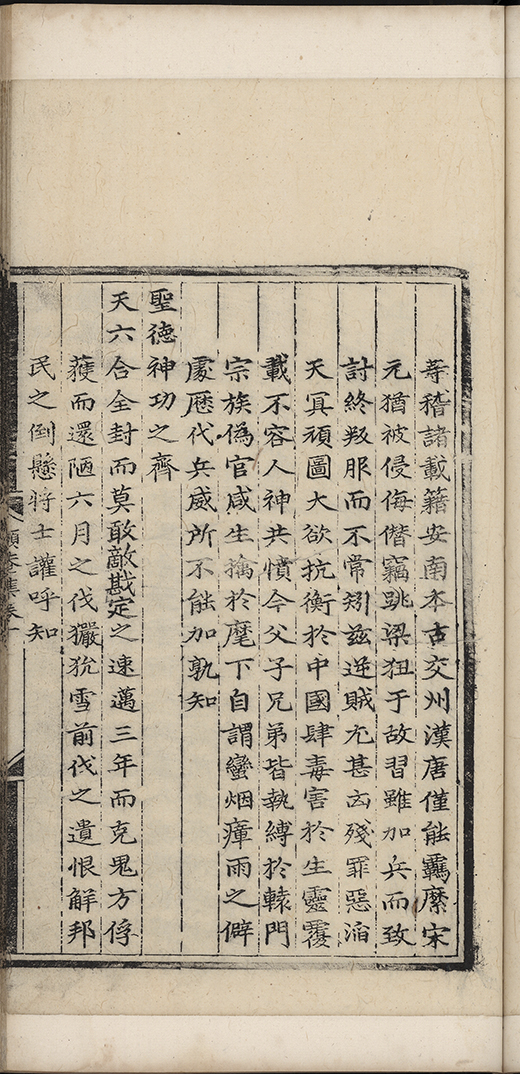 等稽諸載籍安南本古交州漢唐僅能羈縻宋
元猶被侵侮僭竊跳梁狃于故習雖加兵而致
討終叛服而不常矧茲逆賊尤甚凶殘罪惡滔
天冥頑圖大欲抗衡於中國肆毒害於生靈覆
載不容人神共憤今父子兄弟皆執縛於轅門
宗族偽官咸生擒於麾下自謂蠻烟瘴雨之僻
處歷代兵威所不能加孰知
聖德神功之齊
天六合全封而莫敢敵戡定之速邁三年而克鬼方俘
獲而還陋六月之伐玁狁雪前代之遺恨解邦
民之倒懸將士讙呼知
頤菴集卷一